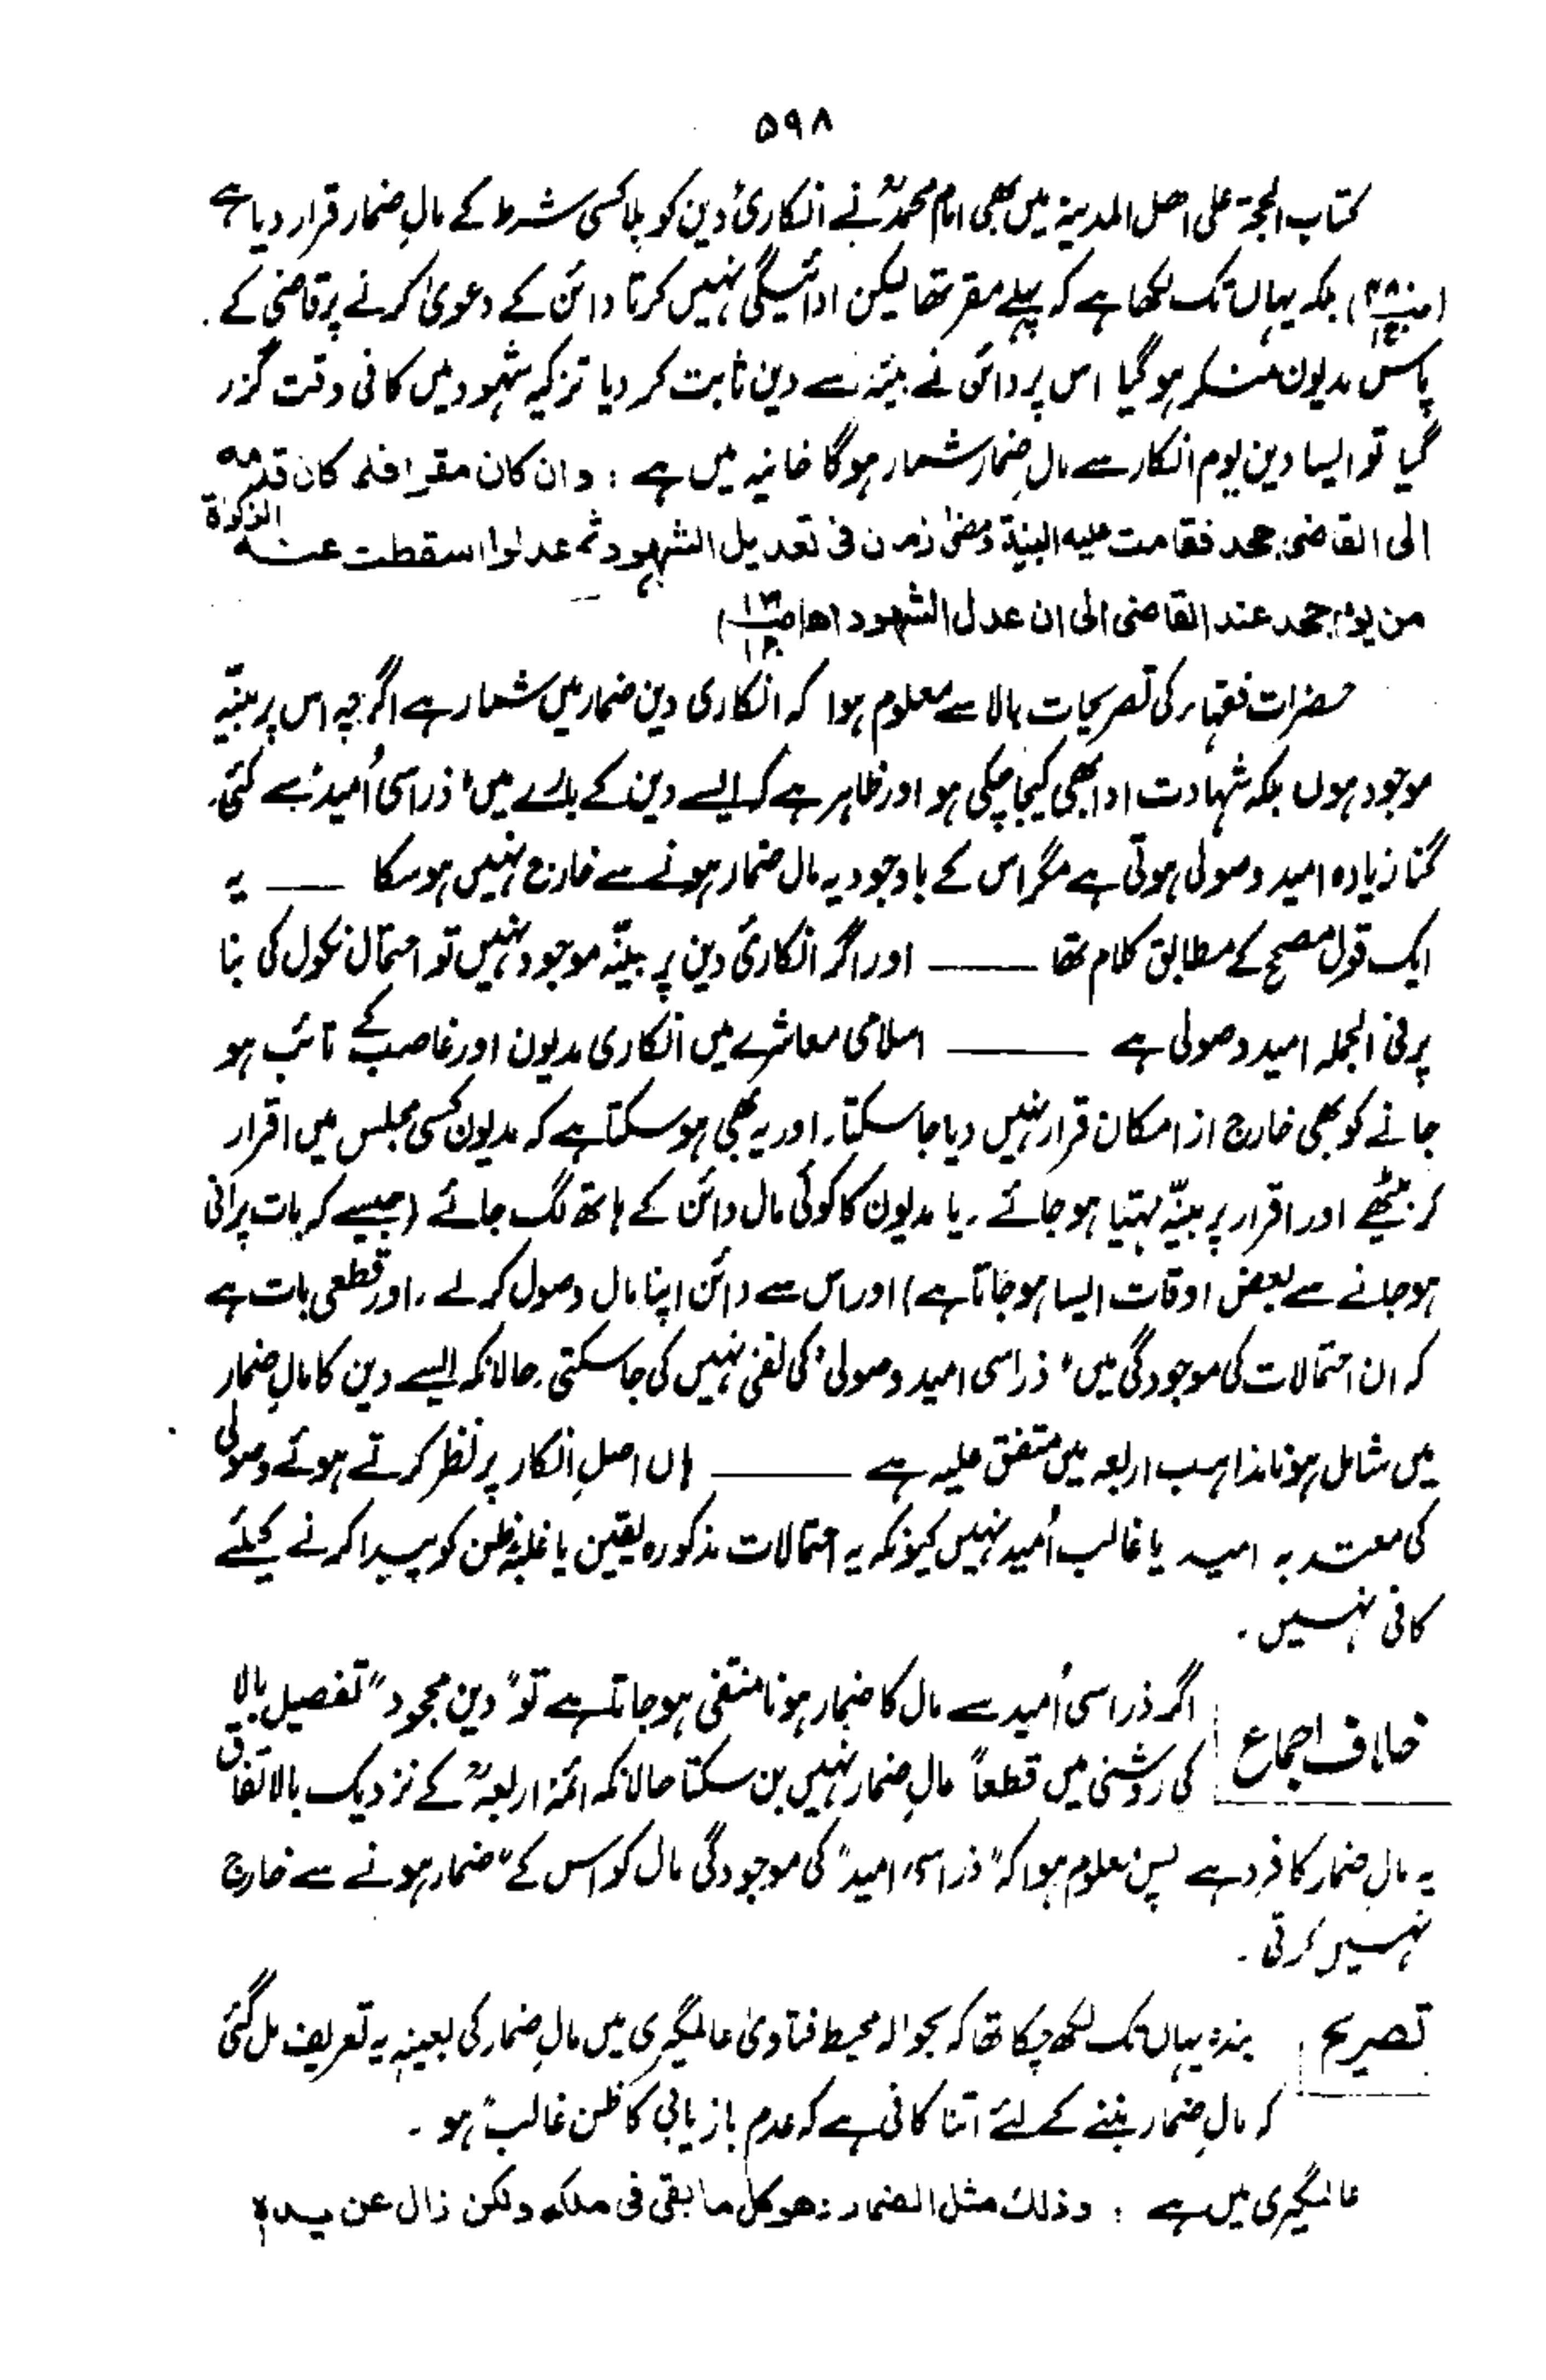 ۵۹۸
کتاب الحجۃ علی اھل المدینۃ میں بھی امام محمدؒ نے انکاریٔ دین کو بلا کسی شرط کے مالِ ضمار قرار دیا ہے
بلکہ یہاں تک لکھا ہے کہ پہلے مقر تھا لیکن ادائیگی نہیں کرتا دائن کے دعویٰ کرنے پر قاضی کے
پاس مدیون منکر ہو گیا اس پر دائن نے بینہ سے دین ثابت کر دیا تزکیہ شہود میں کافی وقت گزر
گیا تو ایسا دین یوم انکار سے مالِ ضمار شمار ہوگا خانیہ میں ہے : وان کان مقرا فلما کان قدمہ
الی القاضی جحد فقامت علیہ البینۃ ومضیٰ زمن فی تعدیل الشہود ثم عدلوا سقطت عنہ الزکوٰۃ
من یوم جحد عند القاضی الی ان عدل الشہود اھ (ص۱۲۰)
حضرات فقہاء کی تصریحات بالا سے معلوم ہوا کہ انکاری دین ضمار میں شمار ہے اگرچہ اس پر بینّہ
موجود ہوں بلکہ شہادت ادا بھی کیجا چکی ہو اور ظاہر ہے کہ ایسے دین کے بارے میں "ذرا سی اُمید" سے کئی
گنا زیادہ امید وصولی ہوتی ہے مگر اس کے باوجود یہ مال ضمار ہونے سے خارج نہیں ہو سکا —— یہ
ایک قول مصحح کے مطابق کلام تھا —— اور اگر انکاریٔ دین پر بینّہ موجود نہیں تو احتمال نکول کی بنا
پر فی الجملہ امید وصولی ہے —— اسلامی معاشرے میں انکاری مدیون اور غاصب کے تائب ہو
جانے کو بھی خارج از امکان قرار نہیں دیا جا سکتا۔ اور یہ بھی ہو سکتا ہے کہ مدیون کسی مجلس میں اقرار
کر بیٹھے اور اقرار پر بینّہ مہیا ہو جائے۔ یا مدیون کا کوئی مال دائن کے ہاتھ لگ جائے (جیسے کہ بات پرانی
ہو جانے سے بعض اوقات ایسا ہو جاتا ہے) اور اس سے دائن اپنا مال وصول کر لے۔ اور قطعی بات ہے
کہ ان احتمالات کی موجودگی میں "ذرا سی امید وصولی" کی نفی نہیں کی جا سکتی۔ حالانکہ ایسے دین کا مالِ ضمار
میں شامل ہونا مذاہب اربعہ میں متفق علیہ ہے —— ہاں اصل انکار پر نظر کرتے ہوئے وصولی
کی معتد بہ امید یا غالب اُمید نہیں کیونکہ یہ احتمالات مذکورہ یقین یا غلبۂ ظن کو پیدا کرنے کیلئے
کافی نہیں۔
خلاف اجماع اگر ذرا سی اُمید سے مال کا ضمار ہونا منتفی ہو جاتا ہے تو "دین مجحود" تفصیل بالا
کی روشنی میں قطعاً مالِ ضمار نہیں بن سکتا حالانکہ ائمۂ اربعہؒ کے نزدیک بالاتفاق
یہ مالِ ضمار کا فرد ہے پس معلوم ہوا کہ "ذرا سی امید" کی موجودگی مال کو اس کے "ضمار ہونے سے خارج
نہیں کرتی۔
تصریح بندہ یہاں تک لکھ چکا تھا کہ بحوالہ محیط فتاویٰ عالمگیری میں مالِ ضمار کی بعینہٖ یہ تعریف مل گئی
کہ مالِ ضمار بننے کے لئے اتنا کافی ہے کہ عدم بازیابی کا ظن غالب ہو۔
عالمگیری میں ہے : وذلك مثل الضمار : ھو کل ما بقی فی ملکہ ولکن زال عن یدہ